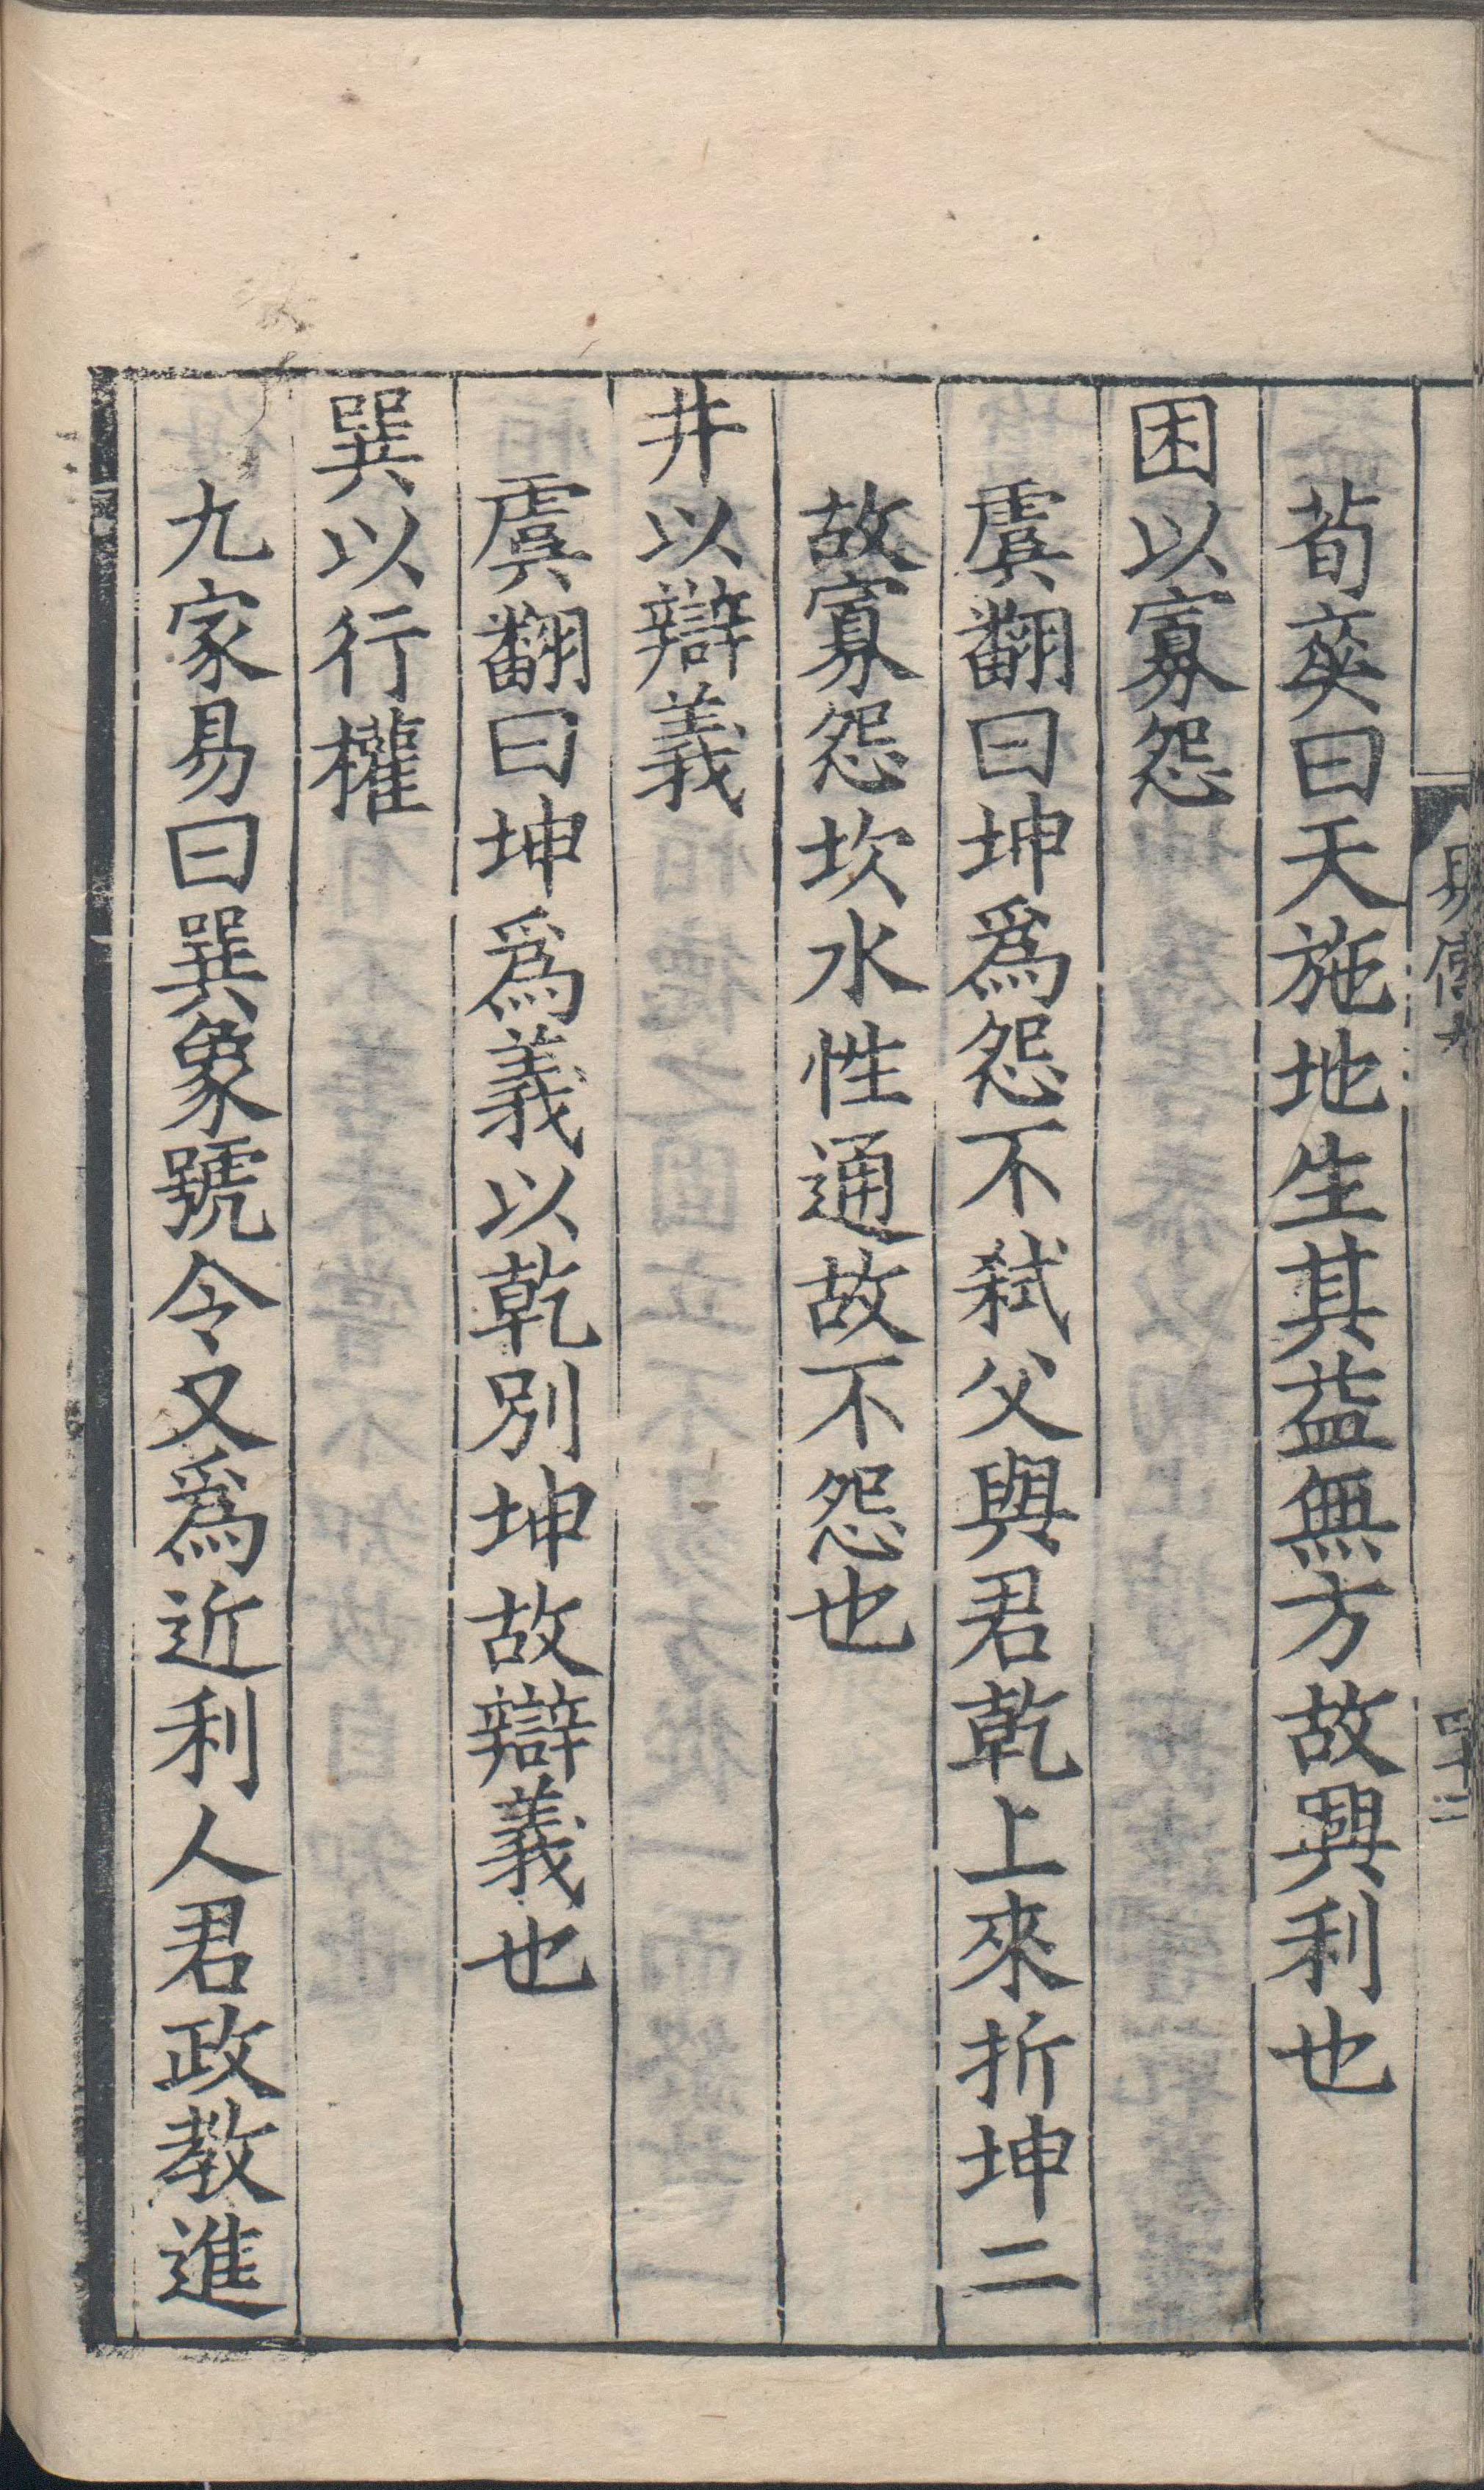 荀爽曰天施地生其益無方故興利也
困以寡怨
虞翻曰坤為怨不弒父與君乾上來折坤二
故寡怨坎水性通故不怨也
井以辯義
虞翻曰坤為義以乾別坤故辯義也
巽以行權
九家易曰巽象號令又為近利人君政教進